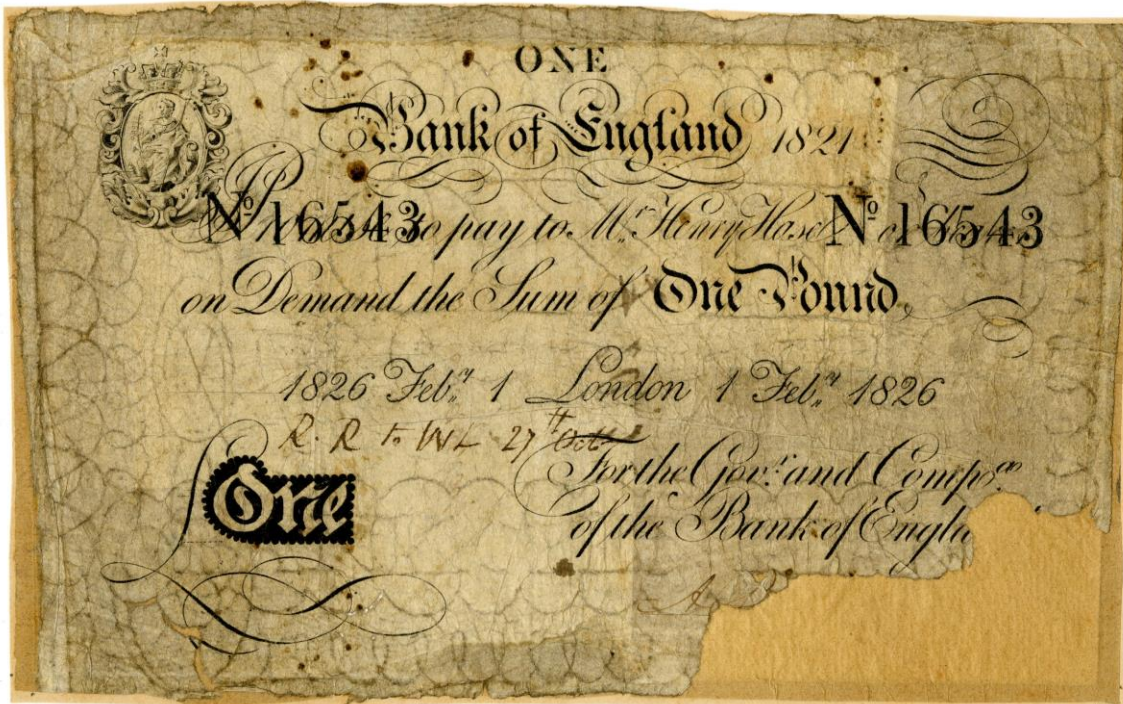 ONE
Bank of England 1821
Nº 16543 to pay to Mr. Henry Hase Nº 16543
on Demand the Sum of One Pound
1826 Feb.ry 1 London 1 Feb.ry 1826
R. R to WL 27th Oct
For the Gov.r and Comp.a
of the Bank of Engla
One